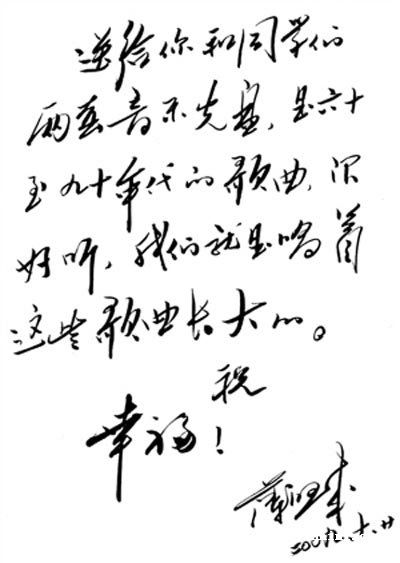 送给你和同学们
两套音乐光盘，是六十
至九十年代的歌曲，很
好听，我们就是唱着
这些歌曲长大的。
祝
幸福！
薄熙来